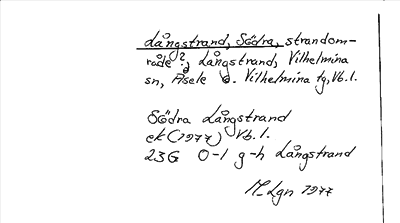 Långstrand, Södra, strandom-
råde?, Långstrand, Vilhelmina
sn, Åsele o. Vilhelmina tg, Vb. l.
Södra Långstrand
ek (1977) Vb. l.
23G 0-1 g-h Långstrand
M_Lgn 1977